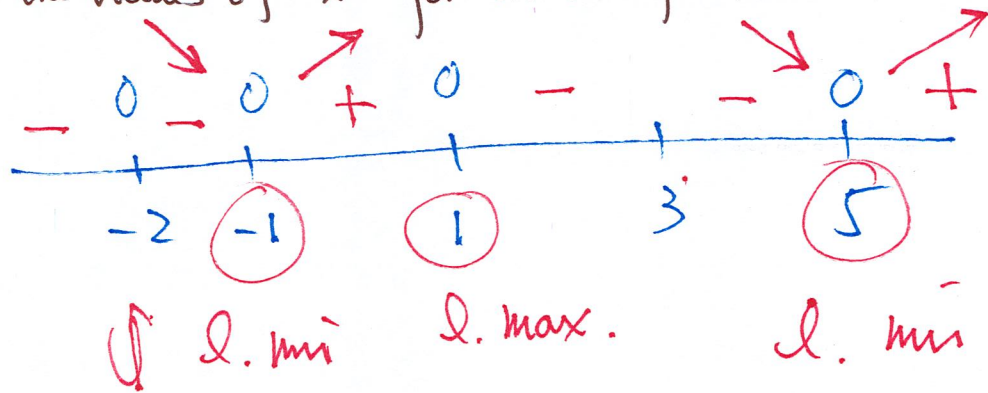 of
0 0 0 0
- - + - - +
-2 -1 1 3 5
l. min l. max. l. min